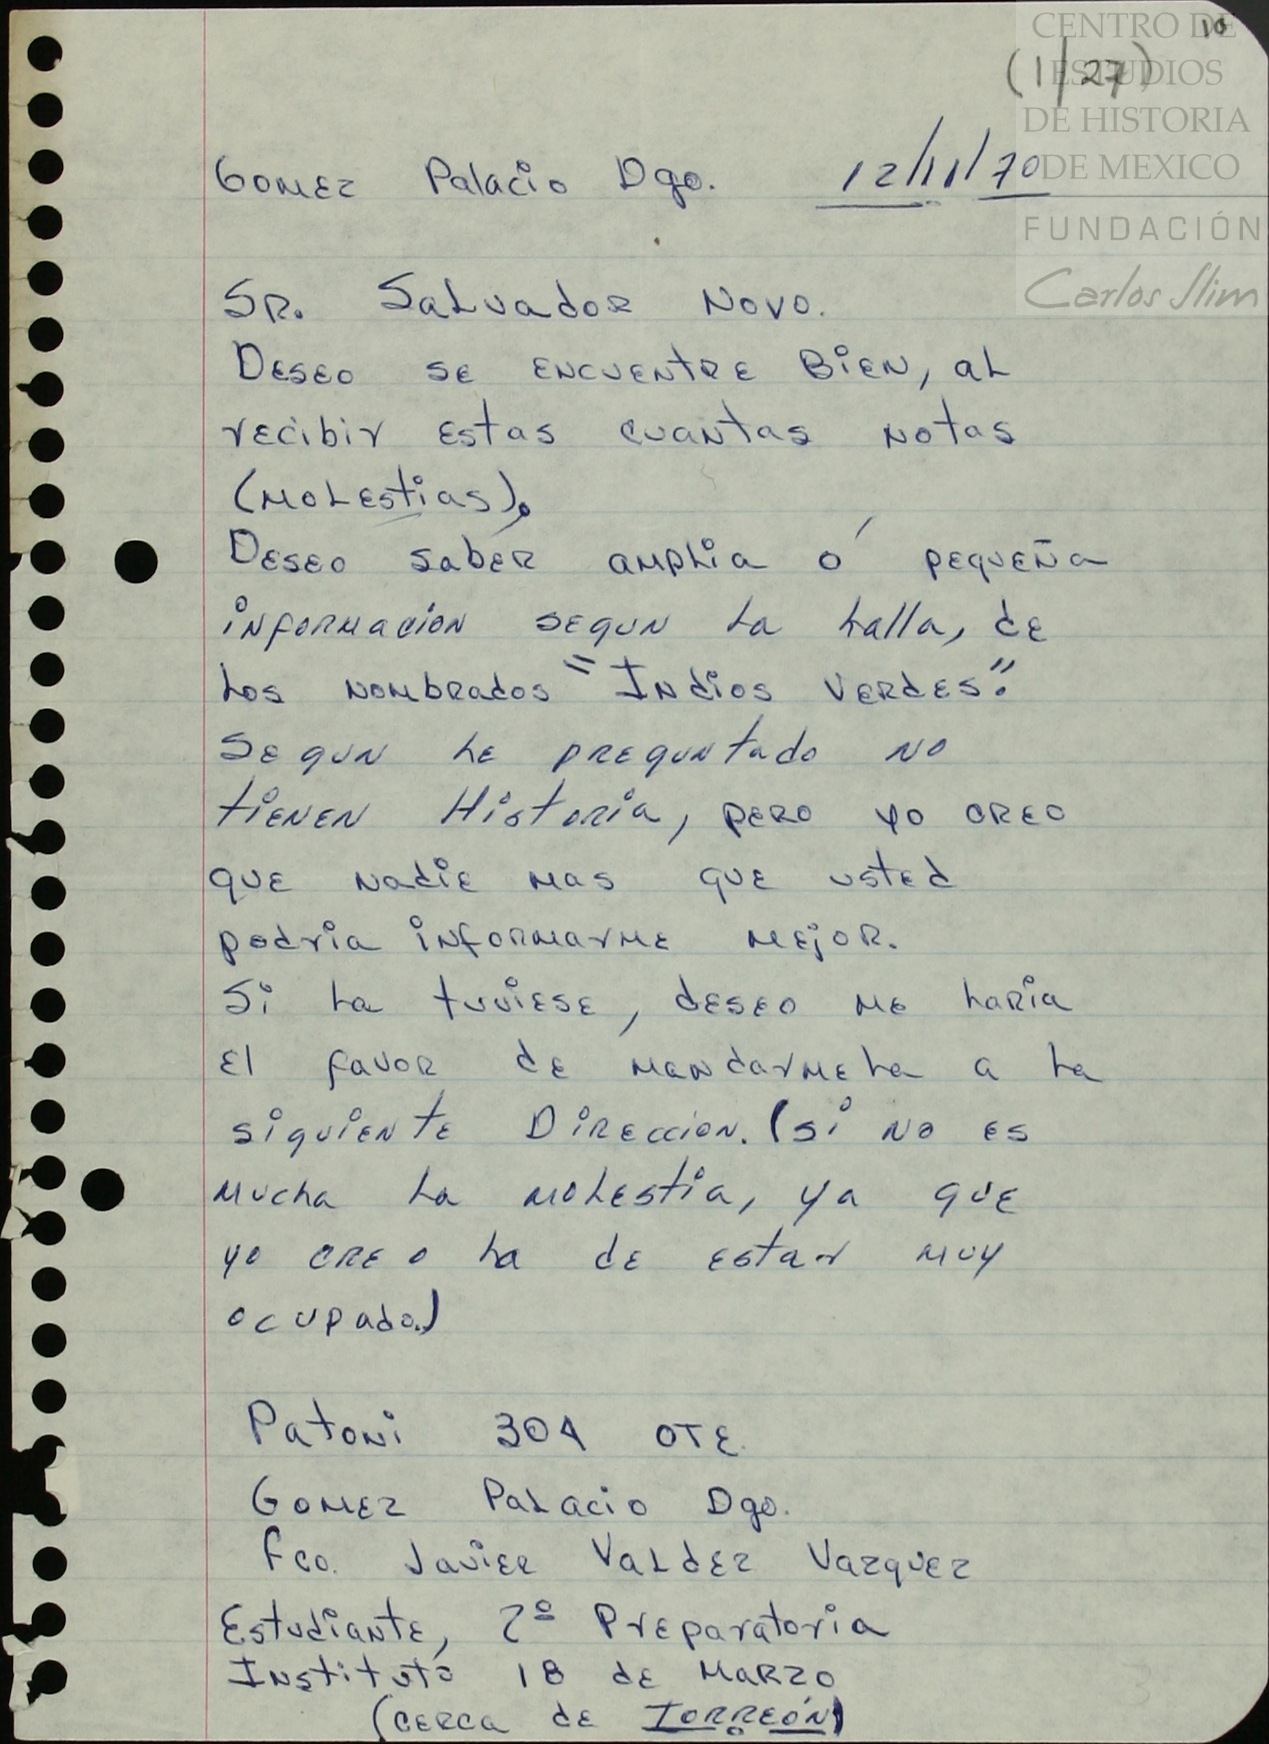 CENTRO DE
ESTUDIOS
DE HISTORIA
DE MEXICO
FUNDACIÓN
Carlos Slim
10
(1/27)
Gomez Palacio Dgo. 12/11/70
Sr. Salvador Novo.
Deseo se encuentre Bien, al
recibir estas cuantas notas
(molestias).
Deseo saber amplia ó pequeña
informacion segun la halla, de
los nombrados "Indios Verdes".
Segun he preguntado no
tienen Historia, pero yo creo
que nadie mas que usted
podria informarme mejor.
Si la tuviese, deseo me haria
el favor de mandarmela a la
siguiente Direccion. (si no es
mucha la molestia, ya que
yo creo ha de estar muy
ocupado.)
Patoni 304 OTE.
Gomez Palacio Dgo.
Fco. Javier Valdez Vazquez
Estudiante, 2º Preparatoria
Instituto 18 de Marzo
(cerca de Torreón)